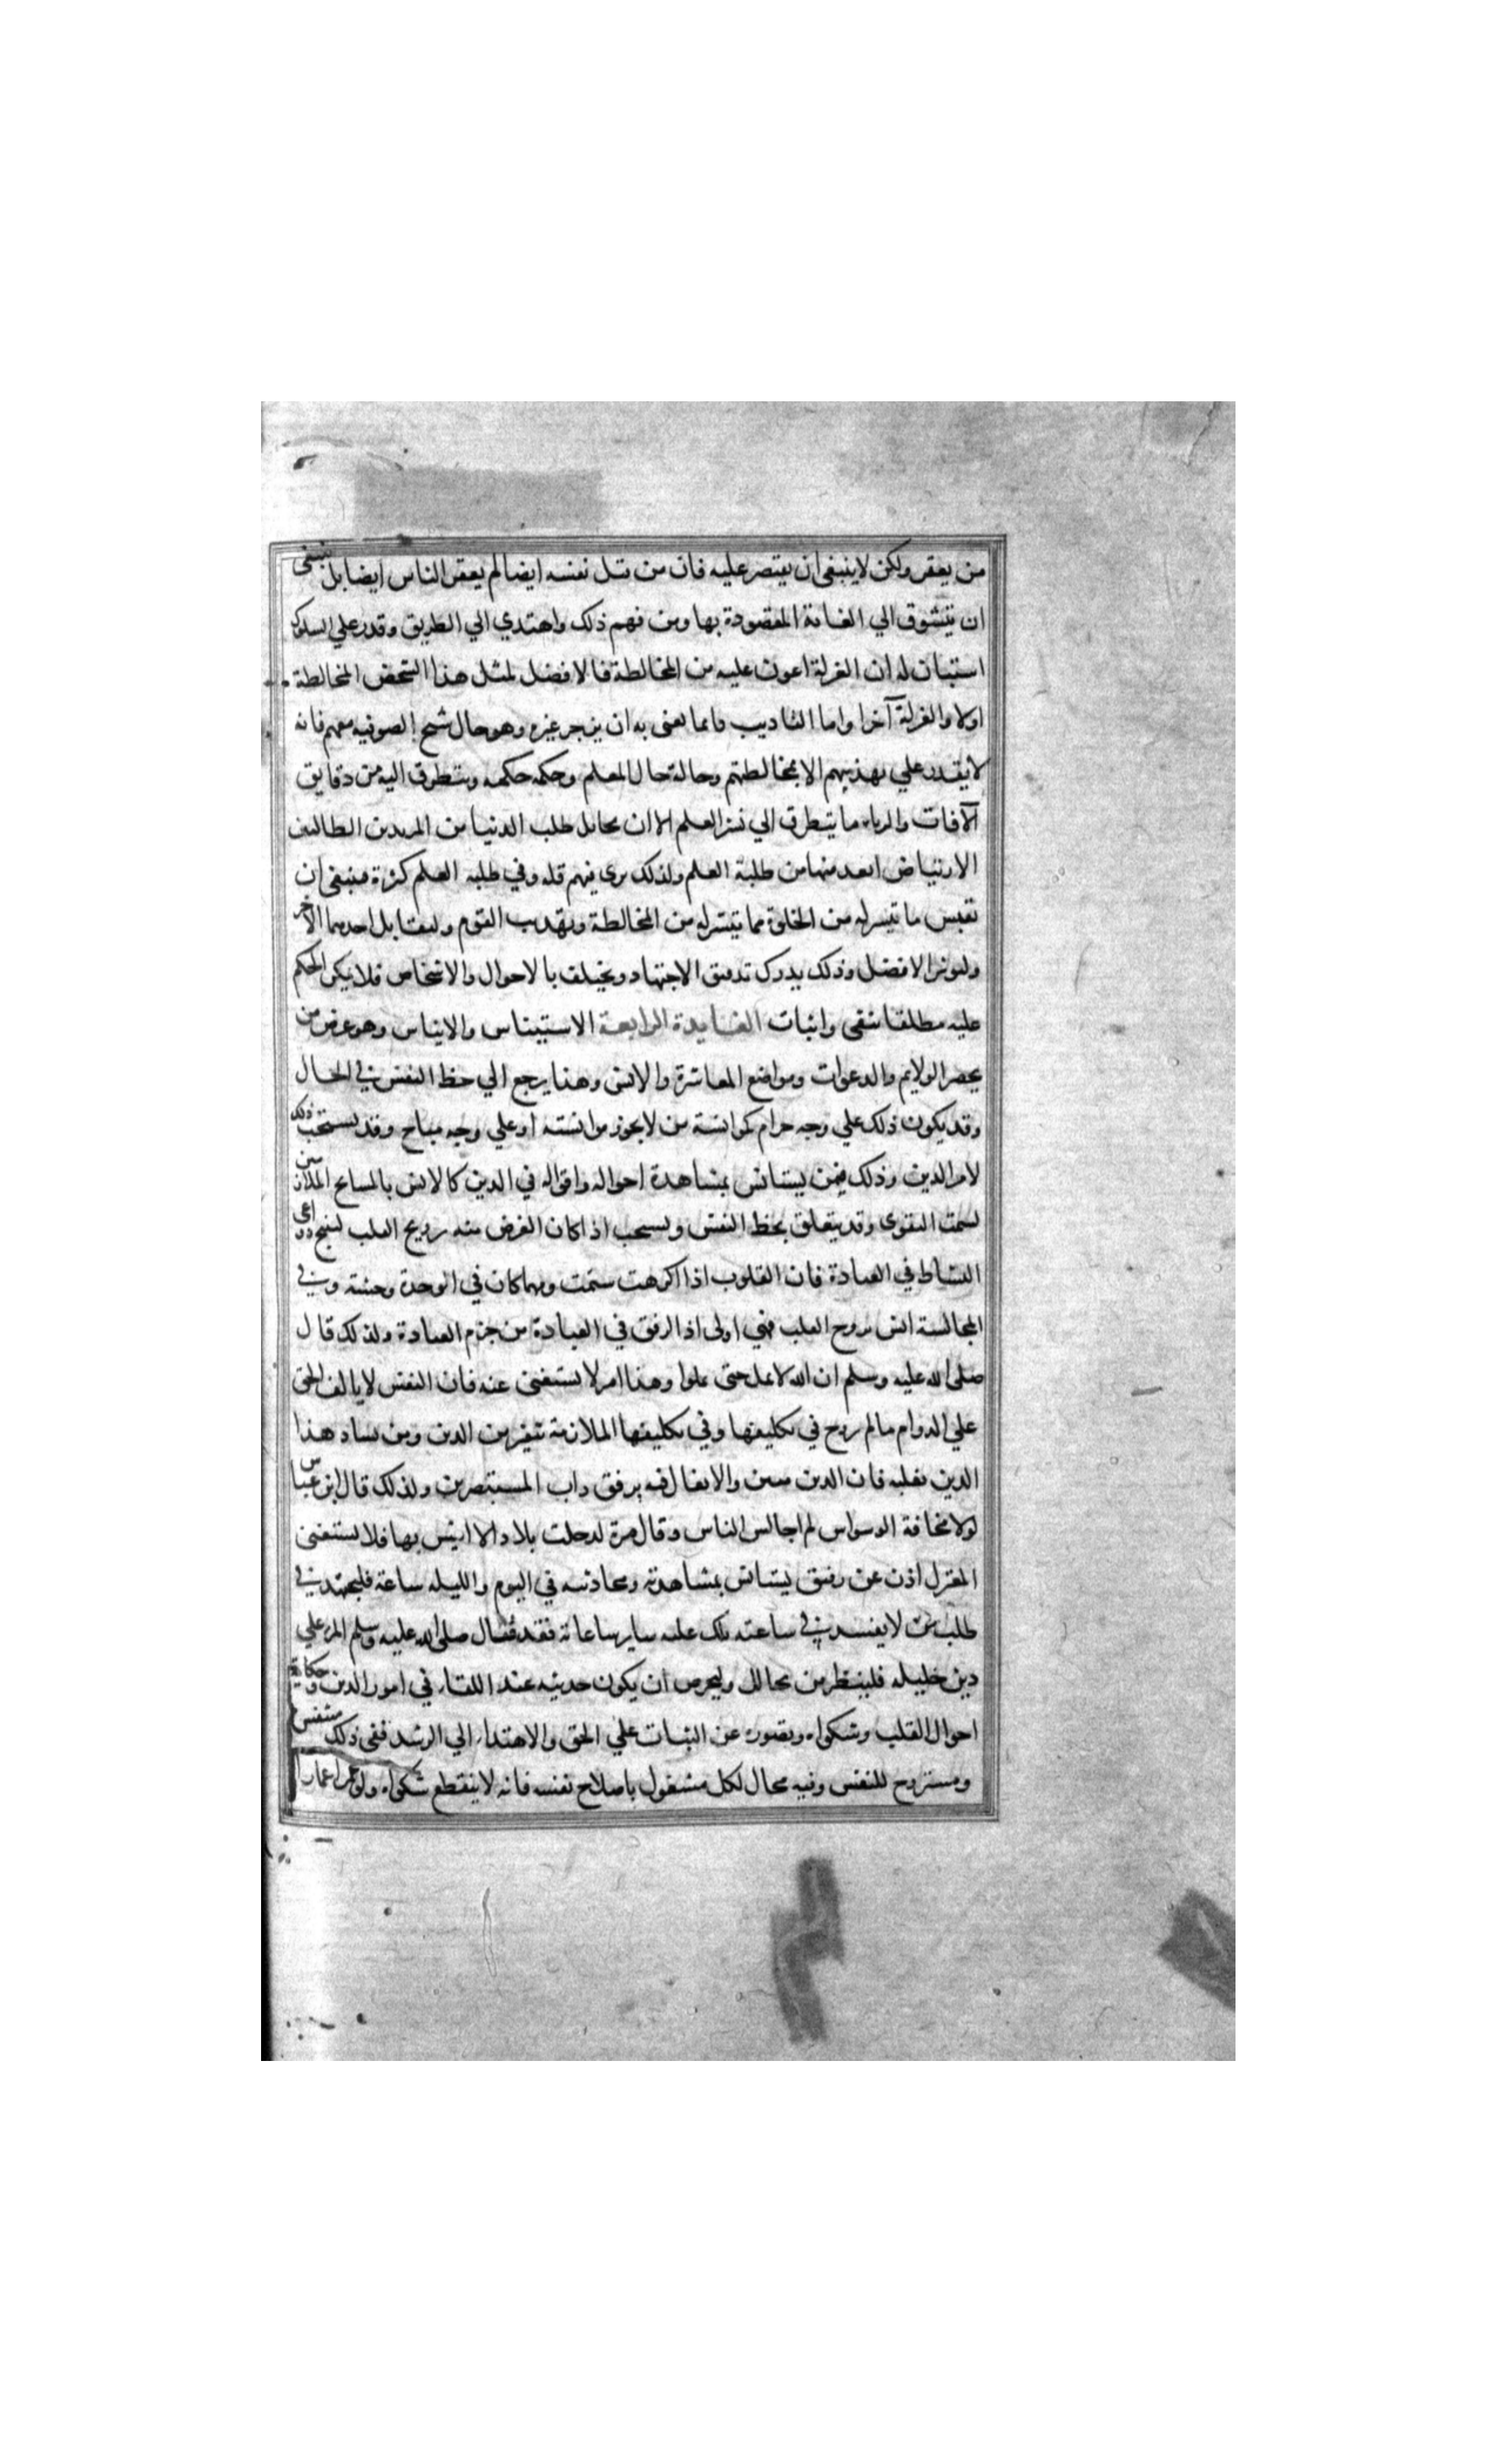 من يعقر ولكن لا ينبغى ان يقتصر عليه فان من قتل نفسه ايضا لم يعقر الناس ايضا بل ينبغى
ان يتشوق الي الغاية المقصودة بها ومن فهم ذلك واهتدي الي الطريق وقدر علي السلوك
استبان له ان العزلة اعون عليه من المخالطة فالافضل لمثل هذا الشخص المخالطة
اولا والعزلة آخرا واما التاديب فانما نعنى به ان يزجر غيره وهو حال شيخ الصوفيه معهم فانه
لا يقدر علي تهذيبهم الا بمخالطتهم وحاله حال المعلم وحكمه حكمه ويتطرق اليه من دقايق
الآفات والرياء ما يتطرق الي نشر العلم الا ان مخايل طلب الدنيا من المريدين الطالبين
الارتياض ابعد منها من طلبة العلم ولذلك يرى فيهم قله وفي طلبه العلم كثرة فينبغى ان
نقيس ما تيسر له من الخلوة بما يتيسر له من المخالطة وتهذيب القوم وليقابل احديهما الاخر
وليوثر الافضل وذلك يدرك بدقيق الاجتهاد ويختلف بالاحوال والاشخاص فلا يمكن الحكم
عليه مطلقا بنفى واثبات الفايدة الرابعة الاستيناس والايناس وهو غرض من
يحضر الولايم والدعوات ومواضع المعاشرة والانس وهذا يرجع الي حظ النفس في الحال
وقد يكون ذلك علي وجه حرام كموانسة من لا يجوز موانسته او علي وجه مباح وقد يستحب ذلك
لامر الدين وذلك فيمن يستانس بمشاهدة احواله واقواله في الدين كالانس بالمشايخ الملازمين
لسمت التقوى وقد يتعلق بحظ النفس ويستحب اذا كان الغرض منه ترويح القلب لتهيج دواعى
النشاط في العبادة فان القلوب اذا اكرهت سئمت ومهما كان في الوحدة وحشة وفي
المجالسة انس يروح القلب فهي اولى اذ الرفق في العبادة من حزم العبادة ولذلك قال
صلى الله عليه وسلم ان الله لا يمل حتى تملوا وهذا امر لا يستغنى عنه فان النفس لا يالف الحق
علي الدوام ما لم تروح في تكليفها وفي تكليفها الملازمة تنفير من الدين ومن يشاد هذا
الدين يغلبه فان الدين متين والايغال فيه برفق داب المستبصرين ولذلك قال ابن عباس
لولا مخافة الوسواس لم اجالس الناس وقال مرة لدخلت بلادا لا انيس بها فلا يستغنى
المعتزل اذن عن رفيق يستانس بمشاهدته ومحادثته في اليوم والليله ساعة فليجتهد في
طلب من لا يفسد في ساعته تلك عليه ساير ساعاته فقد قال صلى الله عليه وسلم المرء علي
دين خليله فلينظر من يخالل وليحرص ان يكون حديثه عند اللقاء في امور الدين وحكاية
احوال القلب وشكواه وقصوره عن الثبات علي الحق والاهتداء الي الرشد ففى ذلك متنفس
ومستروح للنفس وفيه مجال لكل مشغول باصلاح نفسه فانه لا ينقطع شكواه ولو عمر اعمارا